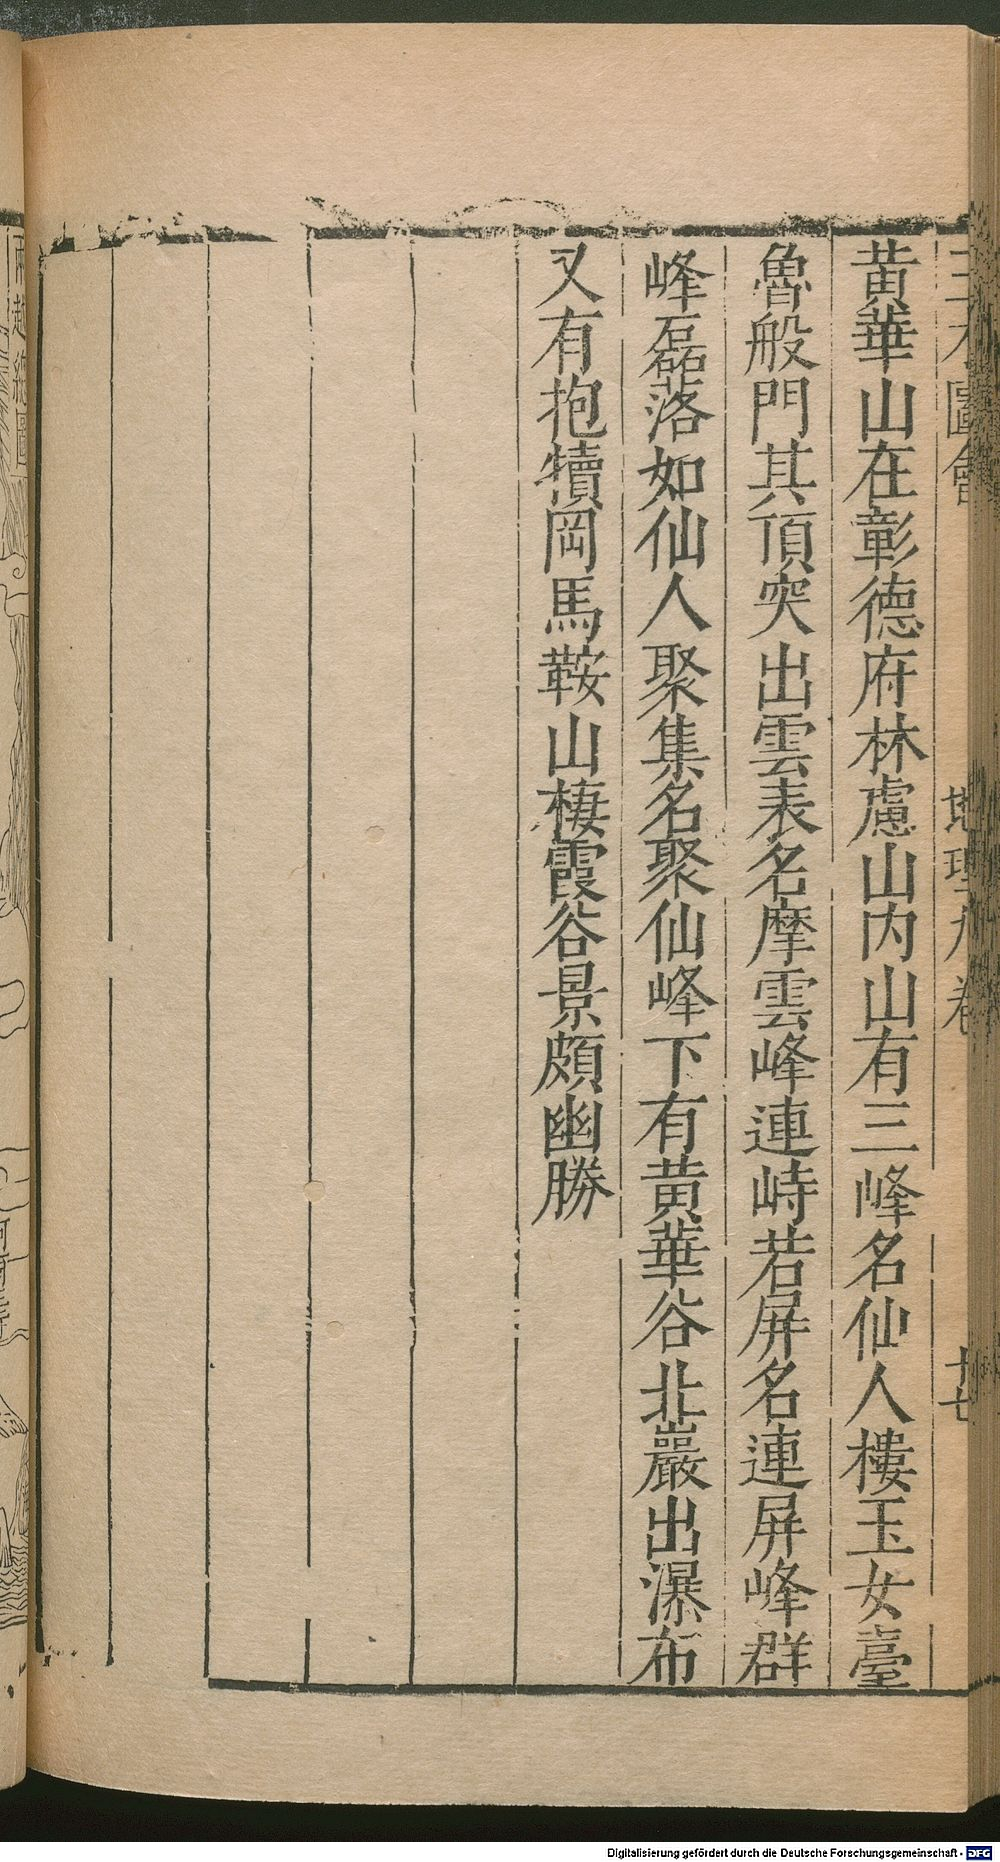 黃華山在彰德府林慮山內山有三峰名仙人樓玉女臺
魯般門其頂突出雲表名摩雲峰連峙若屏名連屏峰群
峰磊落如仙人聚集名聚仙峰下有黃華谷北巖出瀑布
又有抱犢岡馬鞍山棲霞谷景頗幽勝
圖會 地理九卷 十七
Digitalisierung gefördert durch die Deutsche Forschungsgemeinschaft - DFG